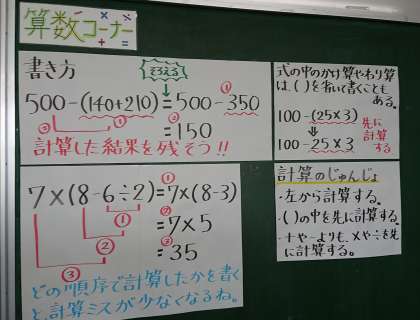 算数コーナー
+ × - ÷ =
書き方
そろえる
500-(140+210)=500-350
①
②
=150
計算した結果を残そう!!
7×(8-6÷2)=7×(8-3)
①
②
③
=7×5
=35
どの順序で計算したかを書く
と計算ミスが少なくなるね。
式の中のかけ算やわり算
は、( )を省いて書くことも
ある。
100-(25×3)
⇓
100-25×3
先に
計算
する
計算のじゅんじょ
・左から計算する。
・( )の中を先に計算する。
・+や-よりも、×や÷を先
に計算する。